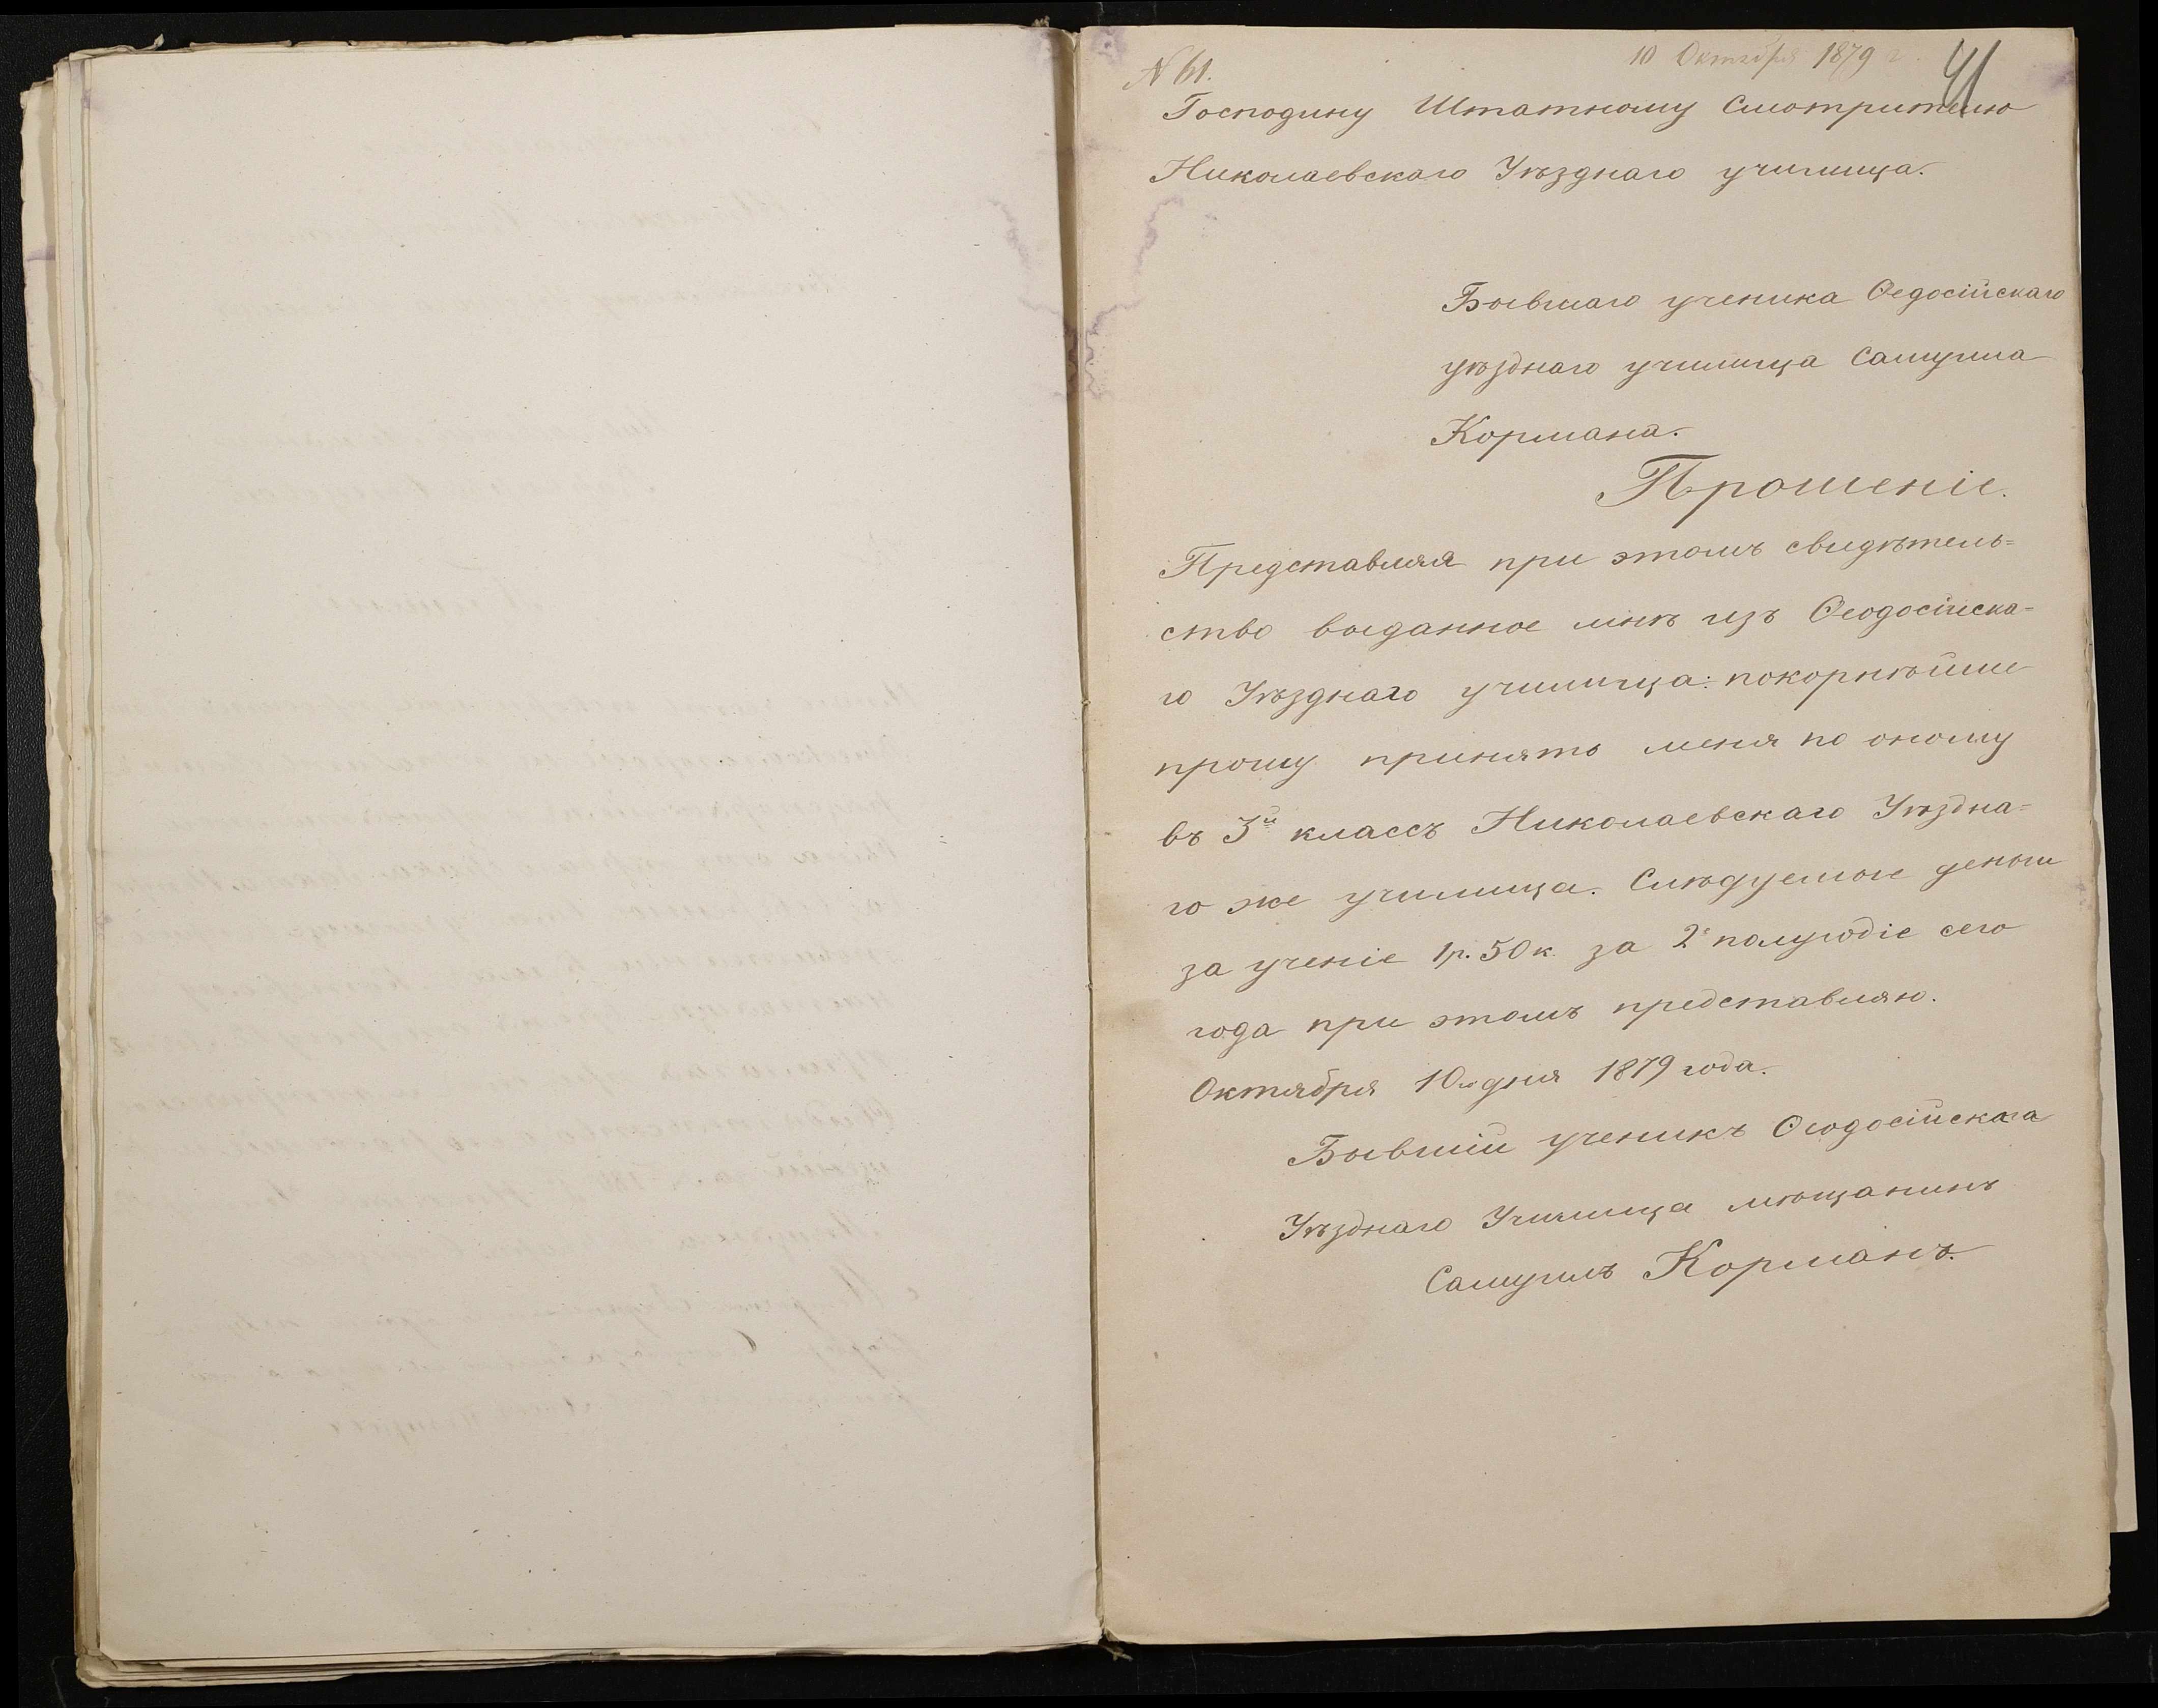 N 61.
10 Октября 1879 г.
41
Господину Штатному Смотрителю
Николаевскаго Уѣзднаго училища.
Бывшаго ученика Ѳедосійскаго
уѣзднаго училища Самуила
Кормана.
Прошеніе.
Представляя при этомъ свидѣтель=
ство выданное мнѣ изъ Ѳеодосійска=
го Уѣзднаго училища: покорнѣйше
прошу принять меня по оному
въ 3й классъ Николаевскаго Уѣздна=
го же училища. Слѣдуемые деньги
за ученіе 1р. 50к. за 2е полугодіе сего
года при этомъ представляю.
Октября 10го дня 1879 года.
Бывшій ученикъ Ѳеодосійскага
Уѣзднаго Училища мѣщанинъ
Самуилъ Корманъ.